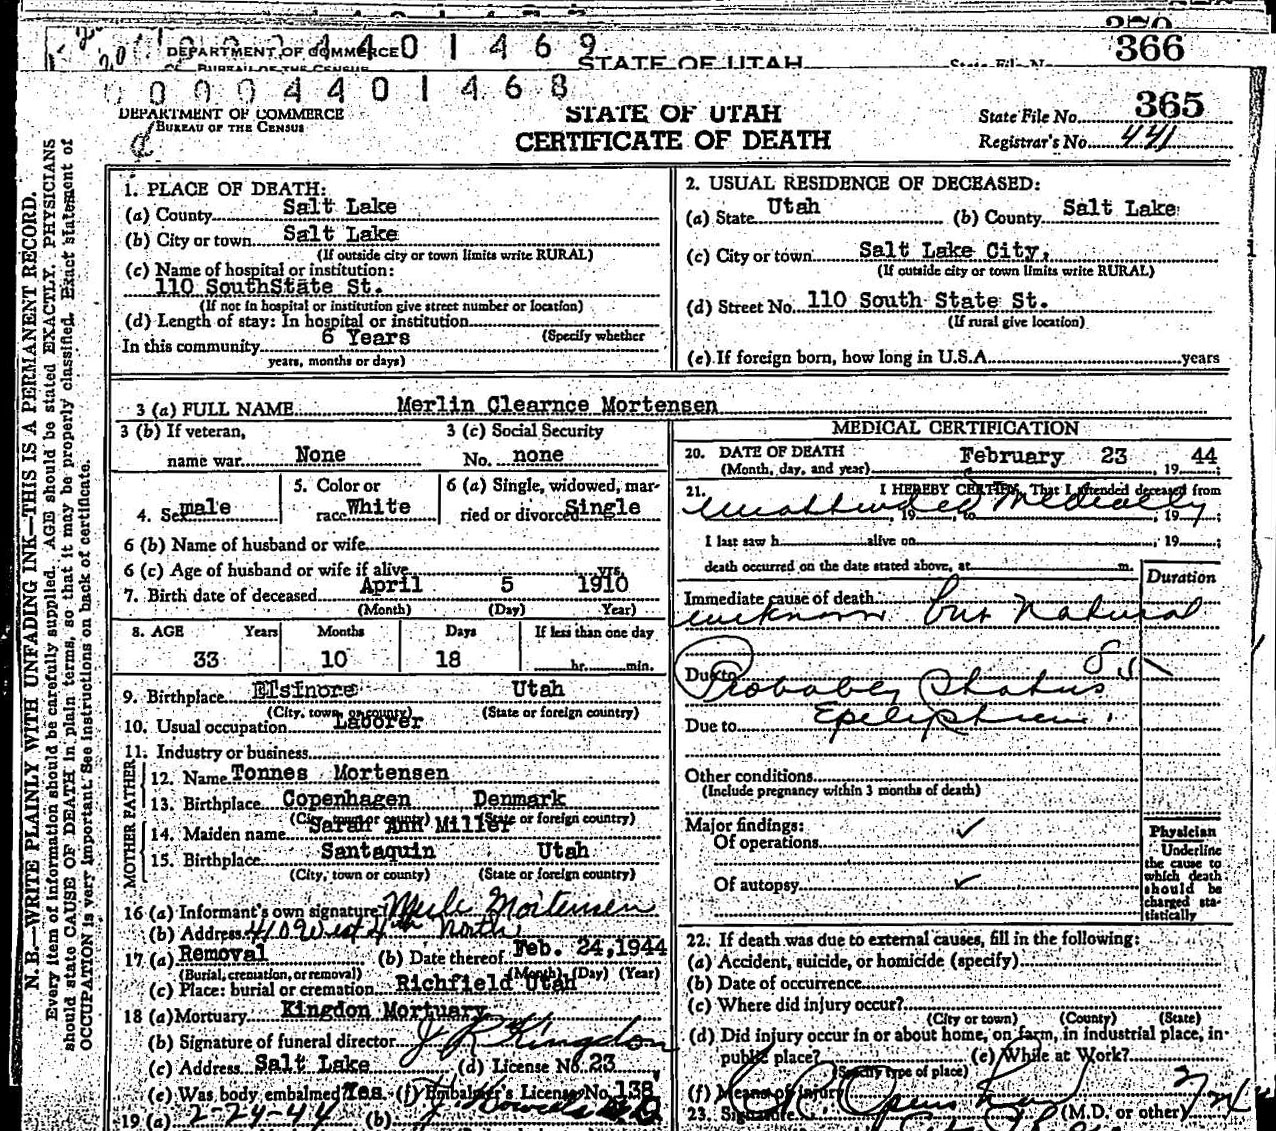 370
DEPARTMENT OF COMMERCE 4 4 0 1 4 6 9 366
BUREAU OF THE CENSUS STATE OF UTAH State File No
0 0 0 0 4 4 0 1 4 6 8
DEPARTMENT OF COMMERCE STATE OF UTAH State File No. 365
BUREAU OF THE CENSUS CERTIFICATE OF DEATH Registrar's No. 441
N. B.—WRITE PLAINLY WITH UNFADING INK—THIS IS A PERMANENT RECORD.
Every item of information should be carefully supplied. AGE should be stated EXACTLY. PHYSICIANS
should state CAUSE OF DEATH in plain terms, so that it may be properly classified. Exact statement of
OCCUPATION is very important. See instructions on back of certificate.
1. PLACE OF DEATH:
(a) County Salt Lake
(b) City or town Salt Lake
(If outside city or town limits write RURAL)
(c) Name of hospital or institution:
110 SouthState St.
(If not in hospital or institution give street number or location)
(d) Length of stay: In hospital or institution
(Specify whether
In this community 6 Years
years, months or days)
2. USUAL RESIDENCE OF DECEASED:
(a) State Utah (b) County Salt Lake
(c) City or town Salt Lake City,
(If outside city or town limits write RURAL)
(d) Street No. 110 South State St.
(If rural give location)
(e) If foreign born, how long in U.S.A. years
3 (a) FULL NAME Merlin Clearnce Mortensen
3 (b) If veteran, 3 (c) Social Security
name war None No. none
4. Sex male 5. Color or race White 6 (a) Single, widowed, married or divorced Single
6 (b) Name of husband or wife
6 (c) Age of husband or wife if alive yrs.
7. Birth date of deceased April 5 1910
(Month) (Day) Year)
8. AGE Years Months Days If less than one day
33 10 18 hr. min.
9. Birthplace Elsinore Utah
(City, town or county) (State or foreign country)
10. Usual occupation Laborer
11. Industry or business
FATHER
12. Name Tonnes Mortensen
13. Birthplace Copenhagen Denmark
(City, town or county) (State or foreign country)
MOTHER
14. Maiden name Sarah Ann Miller
15. Birthplace Santaquin Utah
(City, town or county) (State or foreign country)
16 (a) Informant's own signature Merle Mortensen
(b) Address 410 West 4th North
17 (a) Removal (b) Date thereof Feb. 24,1944
(Burial, cremation, or removal) (Month) (Day) (Year)
(c) Place: burial or cremation Richfield Utah
18 (a) Mortuary Kingdon Mortuary
(b) Signature of funeral director J R Kingdon
(c) Address Salt Lake (d) License No. 23
(e) Was body embalmed Yes (f) Embalmer's License No. 138
19 (a) 2-24-44 (b)
MEDICAL CERTIFICATION
20. DATE OF DEATH February 23 44
(Month, day, and year) , 19
21. I HEREBY CERTIFY, That I attended deceased from
unattended medically , 19 , to , 19 ;
I last saw h alive on , 19 ;
death occurred on the date stated above, at m.
Duration
Immediate cause of death
unknown but natural
Due to
Probably Status
Due to Epilepticus
Other conditions
(Include pregnancy within 3 months of death)
Major findings:
Of operations
Of autopsy
Physician
Underline
the cause to
which death
should be
charged sta-
tistically
22. If death was due to external causes, fill in the following:
(a) Accident, suicide, or homicide (specify)
(b) Date of occurrence
(c) Where did injury occur?
(City or town) (County) (State)
(d) Did injury occur in or about home, on farm, in industrial place, in-
public place? (e) While at Work?
(Specify type of place)
(f) Means of injury
23. Signature (M.D. or other)